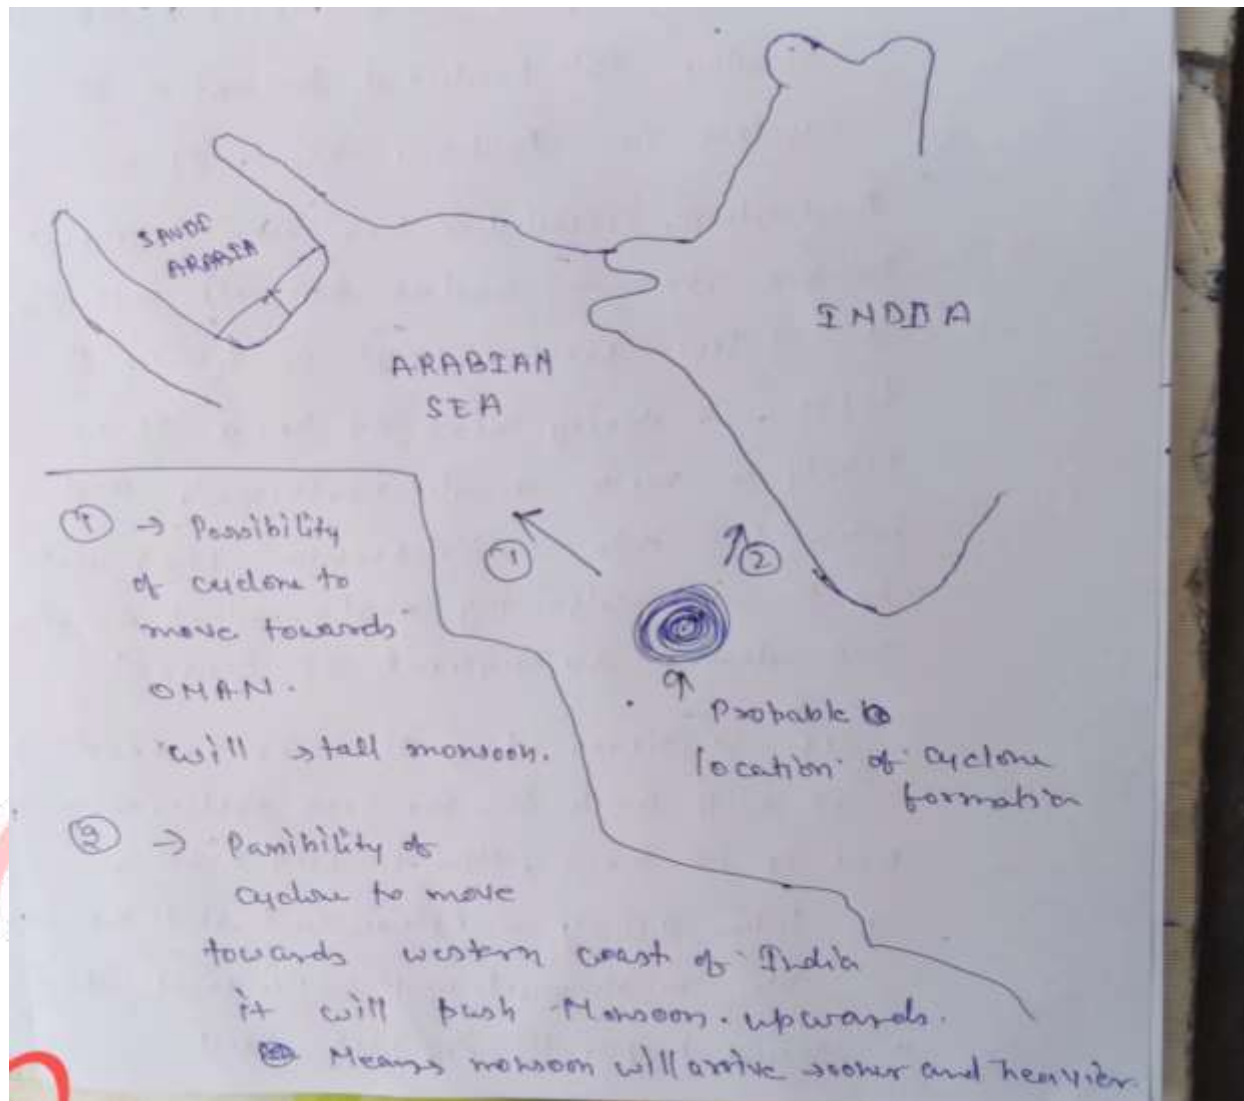 SAUDI
ARABIA
INDIA
ARABIAN
SEA
① → Possibility
of cyclone to
move towards
OMAN.
will stall monsoon.
①
②
Probable
location of cyclone
formation
② → Possibility of
cyclone to move
towards western coast of India
it will push Monsoon. upwards.
Means monsoon will arrive sooner and heavier.